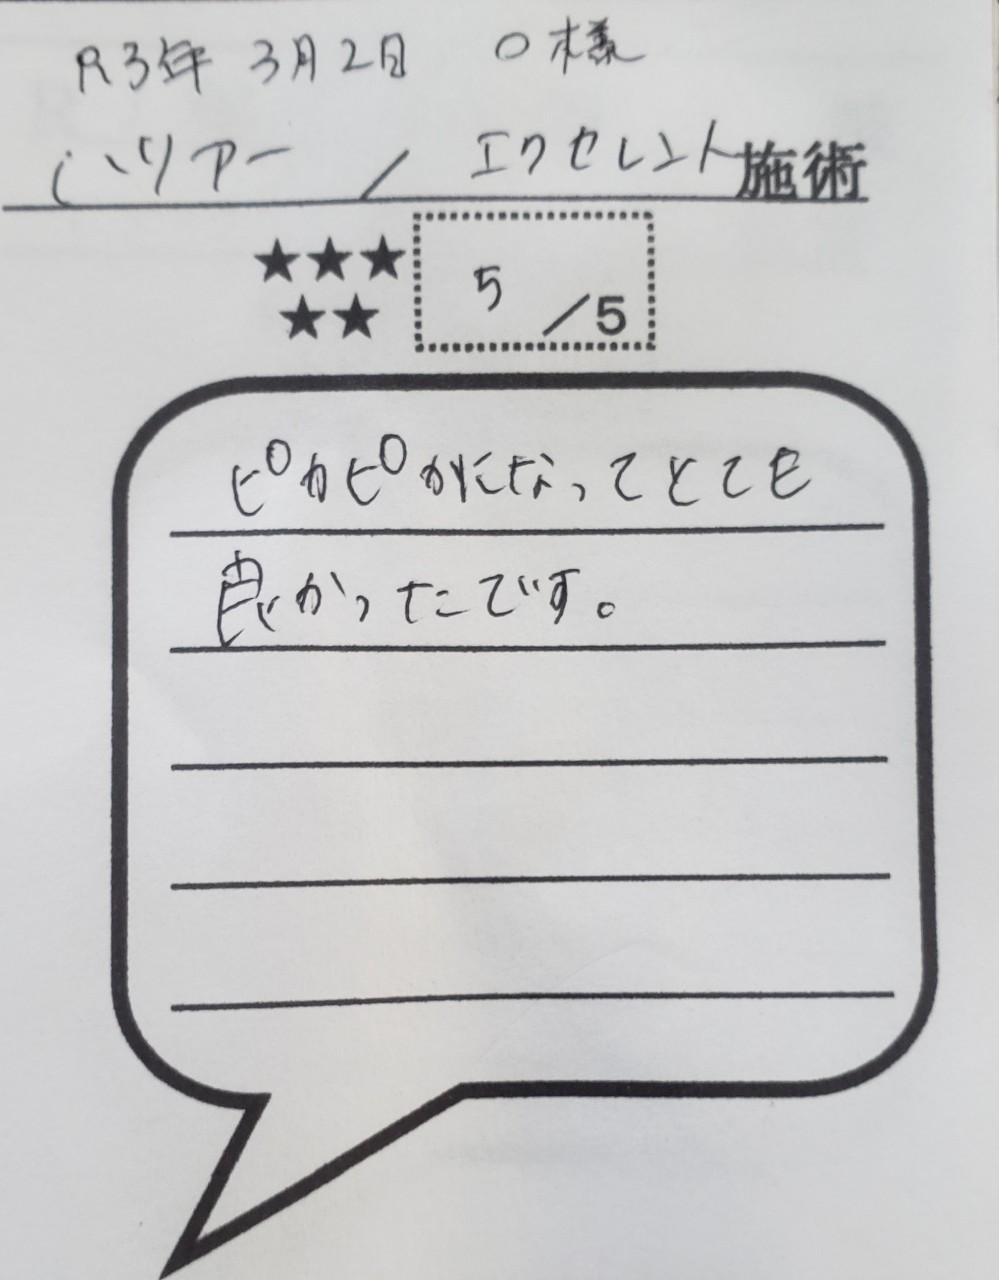 R3年 3月2日 O様
ハリアー / エクセレント施術
★★★
★★
5 /5
ピカピカになってとても
良かったです。